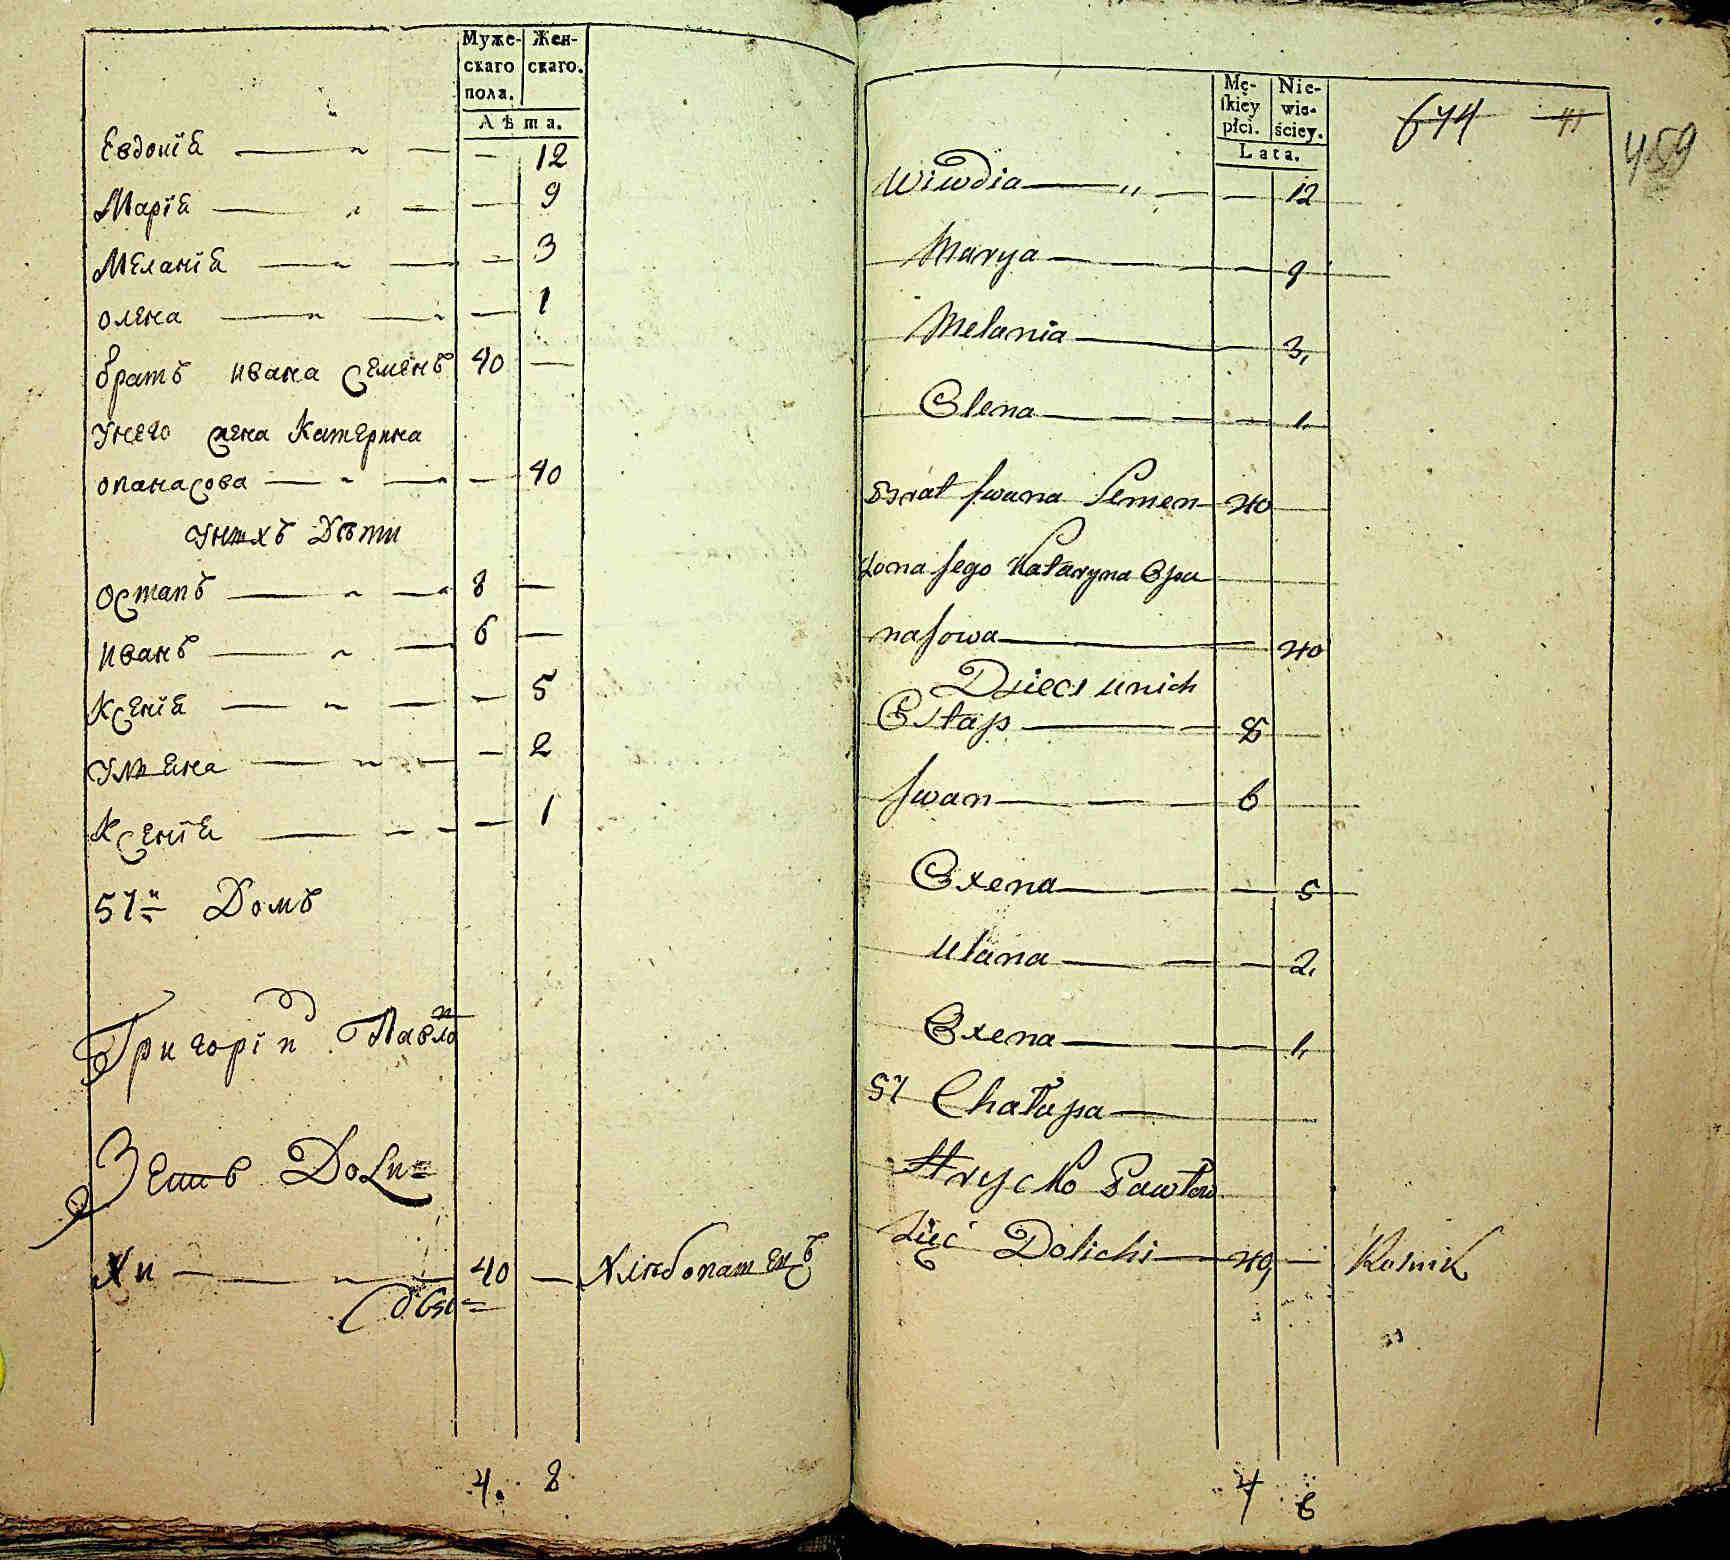 Муже-
скаго
пола.
Жен-
скаго.
Лѣта.
Евдокія — — — 12
Марія — — — 9
Меланія — — — 3
олена — — — 1
братъ ивана Семенъ 40 —
унего жена Катерина
опанасова — — — 40
унихъ Дѣти
Остапъ — — 8 —
иванъ — — 6 —
Ксенія — — — 5
Улияна — — — 2
Ксенія — — — 1
57й Домъ
Григорій Павло
Зеть Доли=
хи — — 40 — Хлѣбопашецъ
4. 8
Mę-
skiey
płci.
Nie-
wie-
ściey.
Lata.
644
459
Wiwdia — — — 12
Marya — — 9
Melania — — 3,
Elena — — — 1.
Brat Iwana Semen — 40 —
Żona Jego Kataryna Opa
nasowa — — 40
Dzieci u nich
Ostap — — 8 —
Iwan — — — 6 —
Oxena — — — 5
Ulana — — — 2,
Oxena — — 1,
57 Chałupa —
Hrycko Pawłow
Zięć Dolichi — 40, — Rolnik
4 6